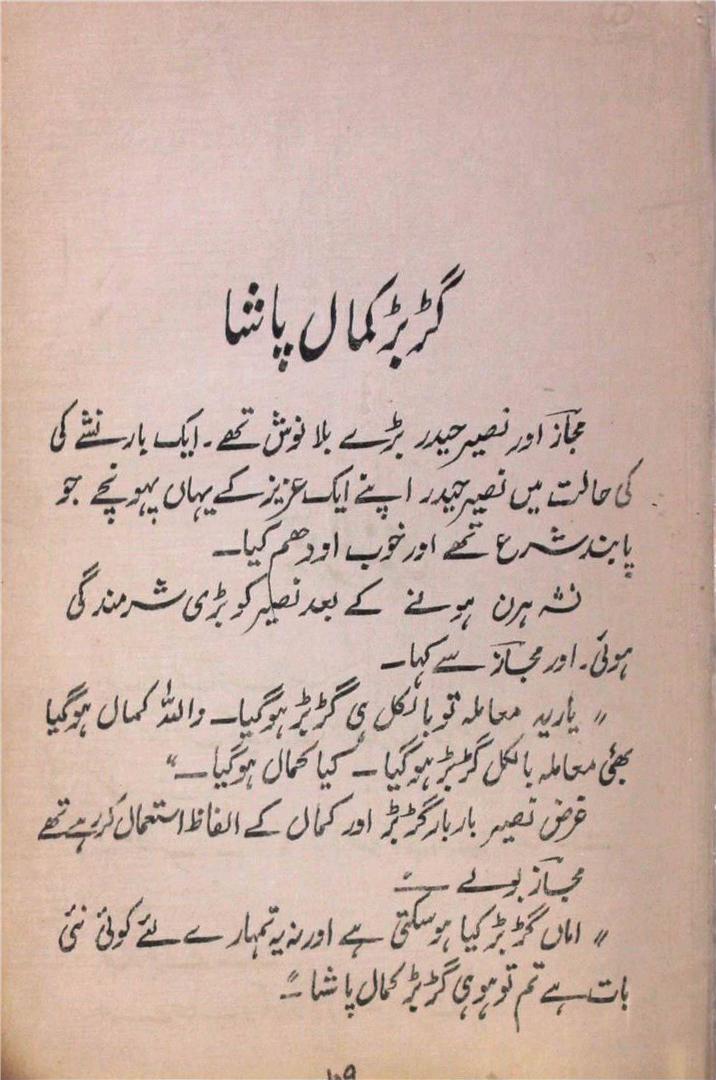 گڑبڑ کمال پاشا
مجاز اور نصیر حیدر بڑے بلا نوش تھے۔ ایک بار نشے کی
کی حالت میں نصیر حیدر اپنے ایک عزیز کے یہاں پہونچے جو
پابند شرع تھے اور خوب اودھم کیا۔
نشہ ہرن ہونے کے بعد نصیر کو بڑی شرمندگی
ہوئی۔ اور مجاز سے کہا۔
"یار یہ معاملہ تو بالکل ہی گڑبڑ ہوگیا۔ واللہ کمال ہوگیا
بھئی معاملہ بالکل گڑبڑ ہوگیا۔ کیا کمال ہوگیا۔"
غرض نصیر بار بار گڑبڑ اور کمال کے الفاظ استعمال کر رہے تھے
مجاز بولے ــــ
"اماں گڑبڑ کیا ہو سکتی ہے اور نہ یہ تمہارے لئے کوئی نئی
بات ہے تم تو ہو ہی گڑبڑ کمال پاشا۔"